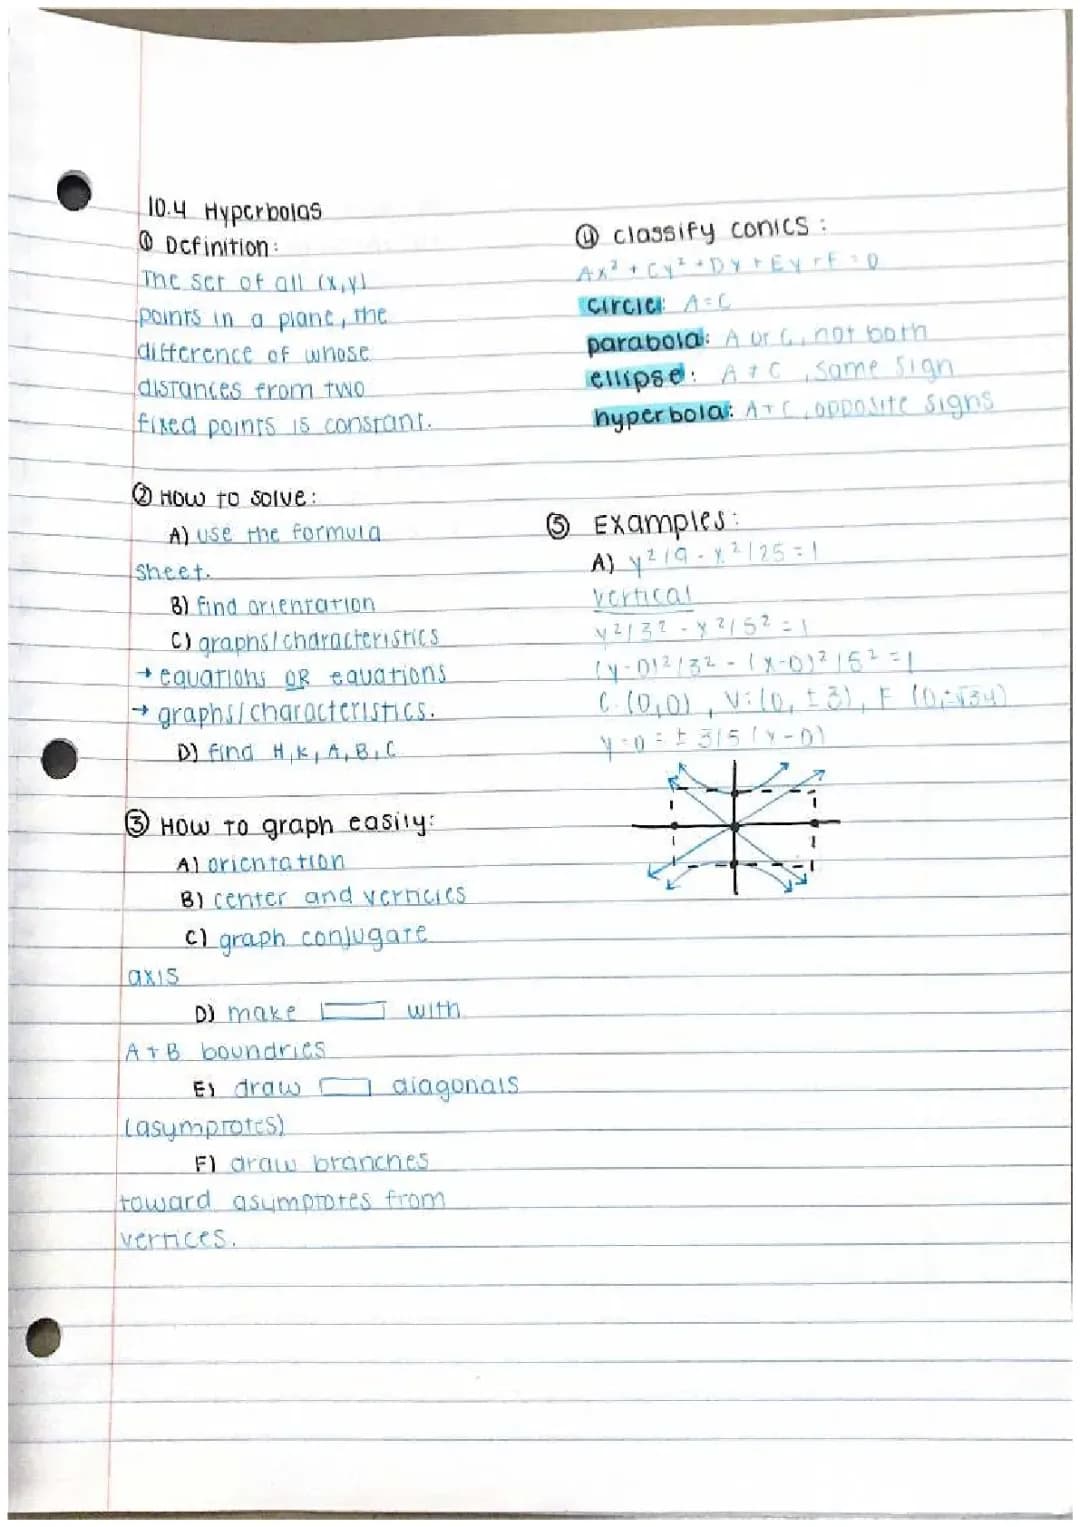 10.4 Hyperbolas
① Definition:
The set of all (x,y)
points in a plane, the
difference of whose
distances from two
fixed points is constant.
② How to solve:
A) use the formula
sheet.
B) find orientation
C) graphs/characteristics
→ equations OR equations
→ graphs/characteristics.
D) find H, K, A, B, C
③ How to graph easily:
A) orientation
B) center and verticies
C) graph conjugate
axis
D) make with
A + B boundries
E) draw diagonals
(asymptotes)
F) draw branches
toward asymptotes from
vertices.
④ classify conics:
Ax² + Cy² + Dx + Ey + F = 0
circle: A=C
parabola: A or C, not both
ellipse: A ≠ C, same sign
hyperbola: A + C, opposite signs
⑤ Examples:
A) y²/9 - x²/25 = 1
vertical
y²/3² - x²/5² = 1
(y-0)²/3² - (x-0)²/5² = 1
C: (0,0), V: (0, ±3), F (0, ±√34)
y-0 = ± 3/5 (x-0)